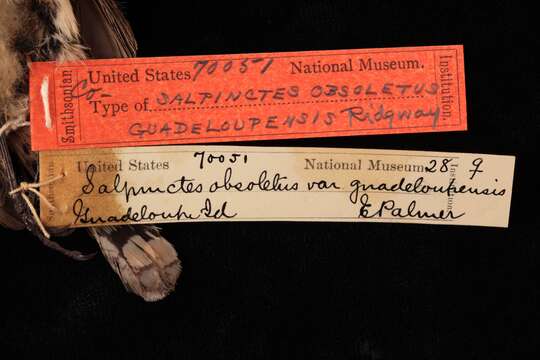 Smithsonian
United States 70051 National Museum.
Institution.
Co-
Type of. SALPINCTES OBSOLETUS
GUADELOUPENSIS Ridgway
United States 70051 National Museum 28 ♀
Salpinctes obsoletus var guadeloupensis
Guadeloupe Isd E Palmer